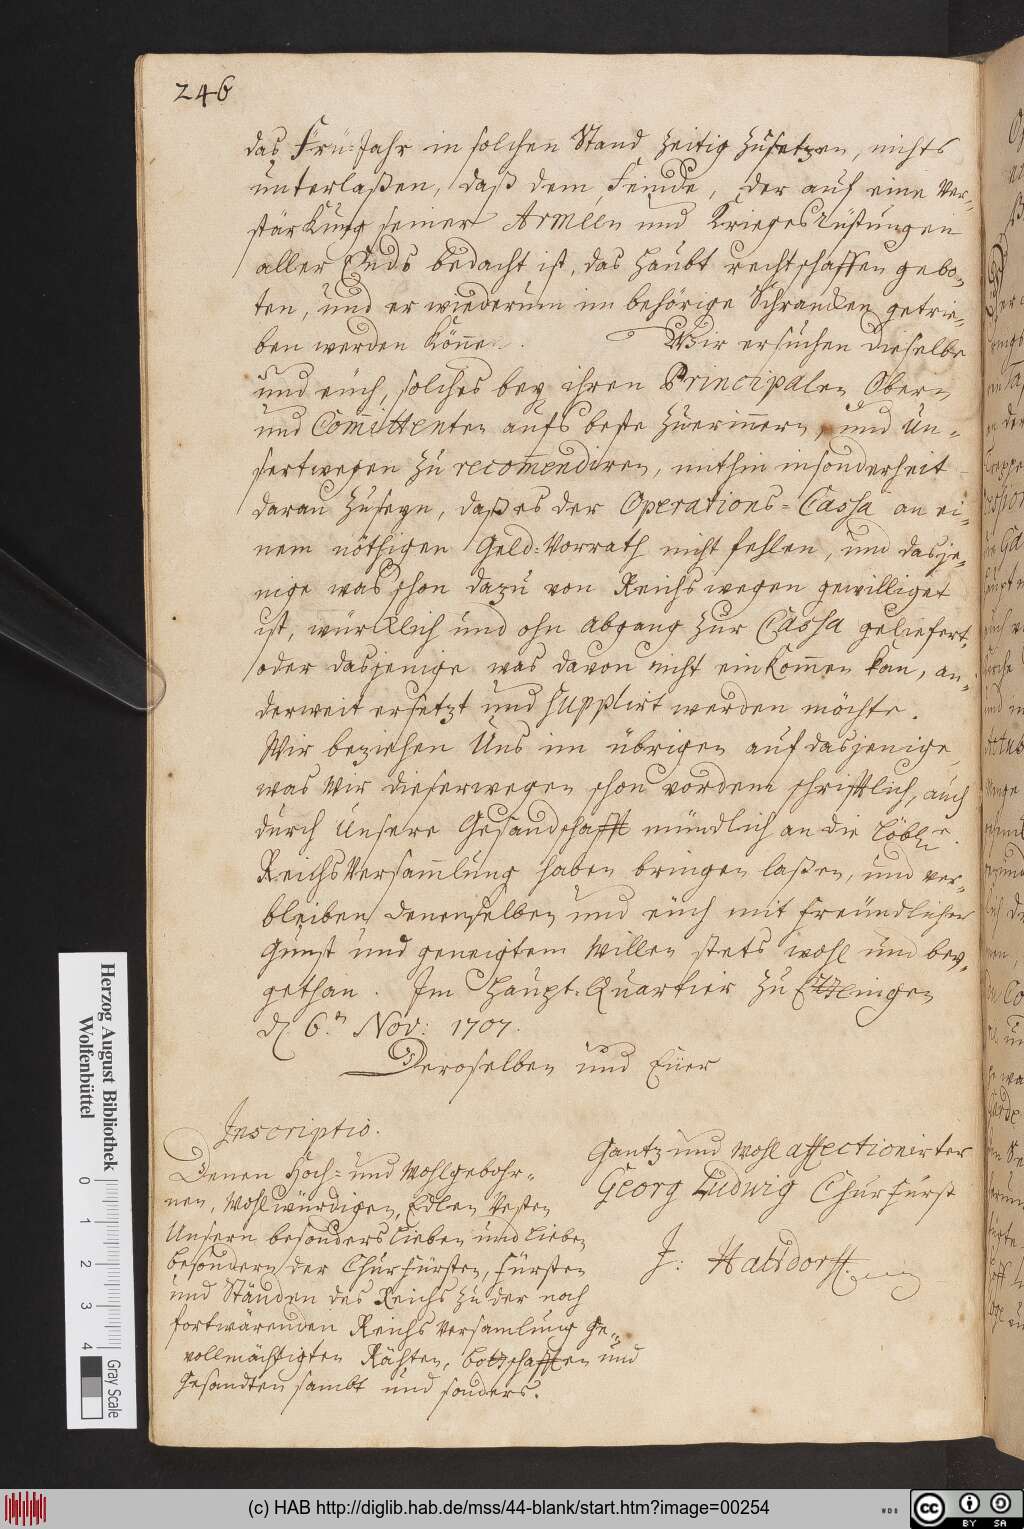 246
das Frü-Jahr in solchen Stand zeitig zusetzen, nichts
unterlaßen, daß dem Feinde, der auf eine Ver-
stärkung seiner Arméen und Kriegesrüstungen
aller Ends bedacht ist, das Haubt rechtschaffen gebo-
ten, und er wiederum im behörige Schrancken getrie-
ben werden könne. Wir ersuchen dieselbe
und euch, solches bey ihren Principalen Obern
und Committenten aufs beste zuerinnern, und Un-
sertwegen zu recomendiren, mithin insonderheit
daran zuseyn, daß es der Operations-Cassa an ei-
nem nöthigen Geld-Vorrath nicht fehlen, und dasje-
nige was schon dazu von Reichs wegen gewilliget
ist, würcklich und ohn abgang zur Cassa geliefert,
oder dasjenige was davon nicht einkommen kan, an-
derweit ersetzt und supplirt werden möchte.
Wir beziehen Uns im übrigen auf dasjenige,
was Wir dieserwegen schon vordem schrifftlich, auch
durch Unsere Gesandschafft mündlich an die Löbl.
Reichs Versammlung haben bringen laßen, und ver-
bleiben denenselben und euch mit freündlicher
Gunst und geneigtem Willen stets wohl und bey-
gethan. Im Haupt-Quartier zu Ettlingen
d. 6.n Nov: 1707.
Deroselben und Euer
Gantz und Wohl affectionirter
Georg Ludwig Churfürst
J: Hattdorff.
Inscriptio.
Denen Hoch- und Wohlgebohr-
nen, Wohlwürdigen, Edlen Vesten
Unsern besonders lieben und lieben
besondern der Churfürsten, Fürsten
und Ständen des Reichs zu der noch
fortwärenden Reichs Versamlung Ge-
vollmächtigten Räthen, Bottschafften und
Gesandten sambt und sonders.
Herzog August Bibliothek
Wolfenbüttel
0 1 2 3 4
Gray Scale
(c) HAB http://diglib.hab.de/mss/44-blank/start.htm?image=00254
WDB
cc BY SA